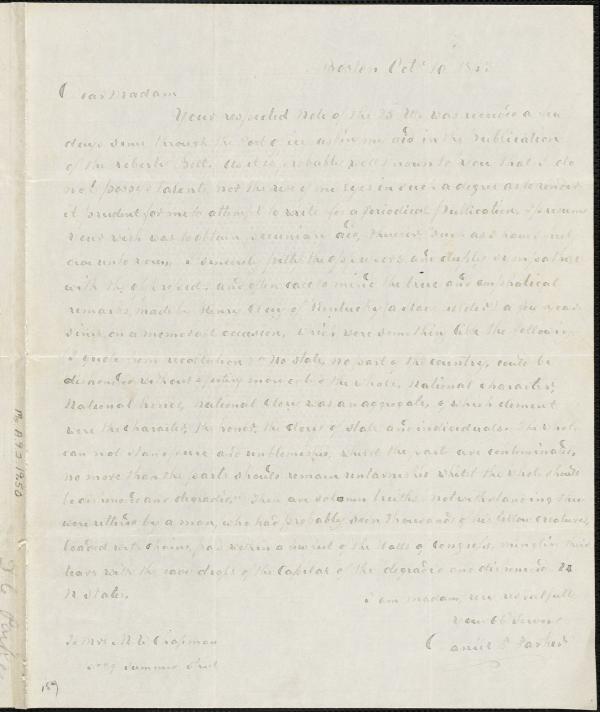 Boston Oct. 10
Dear Madam
Your respected Note of the 25 Ult. was received a few
days since through the Post Office, asking my aid in the Publication
of the Liberty Bell. As it is probably well known to you that I do
not possess talents, nor the use of my Eyes in such a degree as to render
it prudent for me to attempt to write for a Periodical Publication, I presume
your wish was to obtain pecuniary aid, However, such as I have
I give unto you. I sincerely
with the oppressed, and often call to mind the true and emphatical
remarks, made by Henry Clay of Kentucky (a slave holder) a few years
since, on a memorable occasion, which were something like the following
I quote from recollection: "No state, no part of the country, could be
dishonored without affecting more or less the whole, National character,
National honor, National Glory was an aggregate, of which element
were the character, the honor, the Glory of state and individuals. The whole
can not stand pure and unblemished, whilst the parts are contaminated,
no more than the parts should remain untarnished whilst the whole should
be dishonored and degraded." These are solemn truths, notwithstanding they
were uttered by a man, who had probably seen thousands of his fellow creatures,
loaded with chains, pass within a mile of the Halls of Congress, mingling their
tears with the
of the Capital of the degraded and dishonored 24
U. States.
I am Madam, very respectfully
Your Ob. Servant
Daniel P. Parker
To Mrs. M. W. Chapman
Summer Street
159
Ms. A.9.2